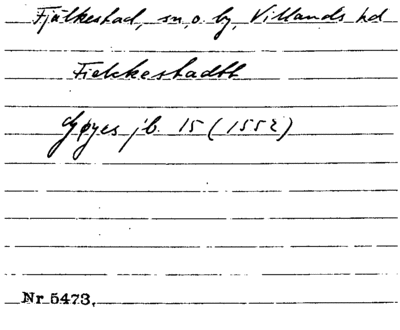 Fjälkestad, sn, o. by, Villands hd
Fielckestadtt
Gøyes jb. 15 (1552)
Nr 5473.